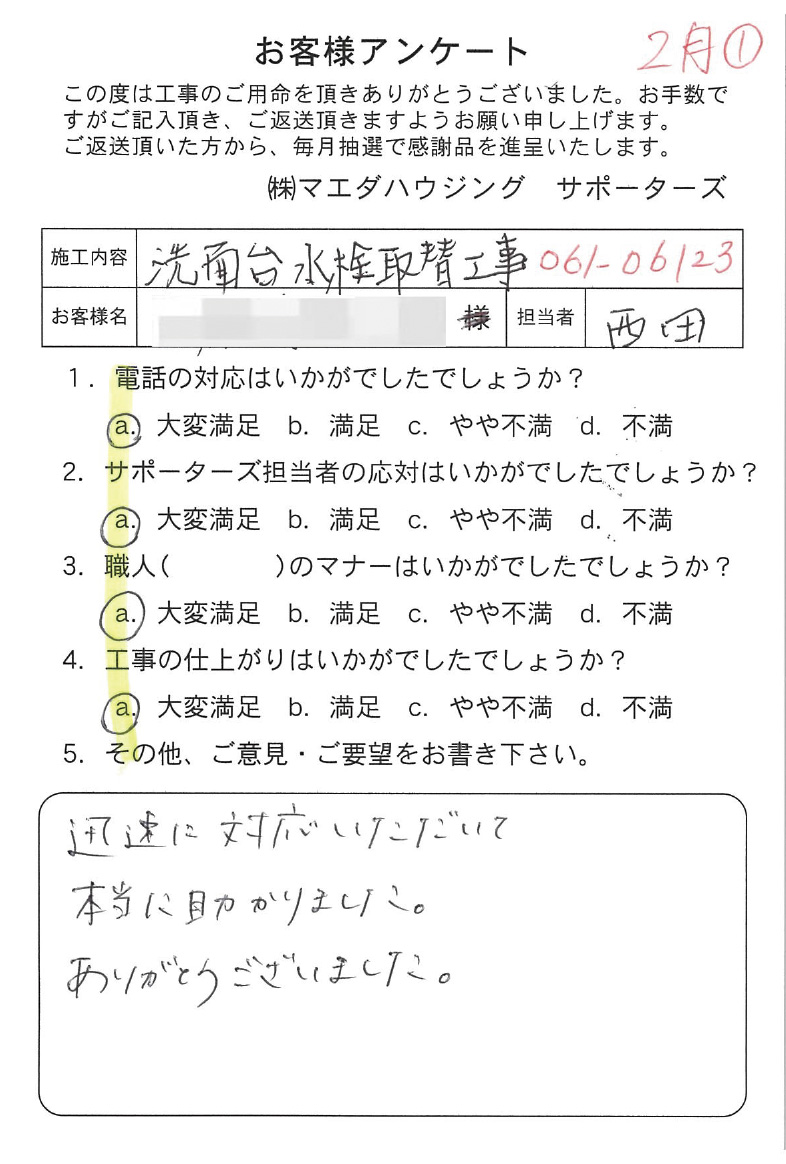 お客様アンケート
2月①
この度は工事のご用命を頂きありがとうございました。お手数で
すがご記入頂き、ご返送頂きますようお願い申し上げます。
ご返送頂いた方から、毎月抽選で感謝品を進呈いたします。
㈱マエダハウジング　サポーターズ
施工内容 洗面台水栓取替工事 061-06123
お客様名 様 担当者 西田
1. 電話の対応はいかがでしたでしょうか？
a. 大変満足 b. 満足 c. やや不満 d. 不満
2. サポーターズ担当者の応対はいかがでしたでしょうか？
a. 大変満足 b. 満足 c. やや不満 d. 不満
3. 職人(　　　　)のマナーはいかがでしたでしょうか？
a. 大変満足 b. 満足 c. やや不満 d. 不満
4. 工事の仕上がりはいかがでしたでしょうか？
a. 大変満足 b. 満足 c. やや不満 d. 不満
5. その他、ご意見・ご要望をお書き下さい。
迅速に対応いただいて
本当に助かりました。
ありがとうございました。